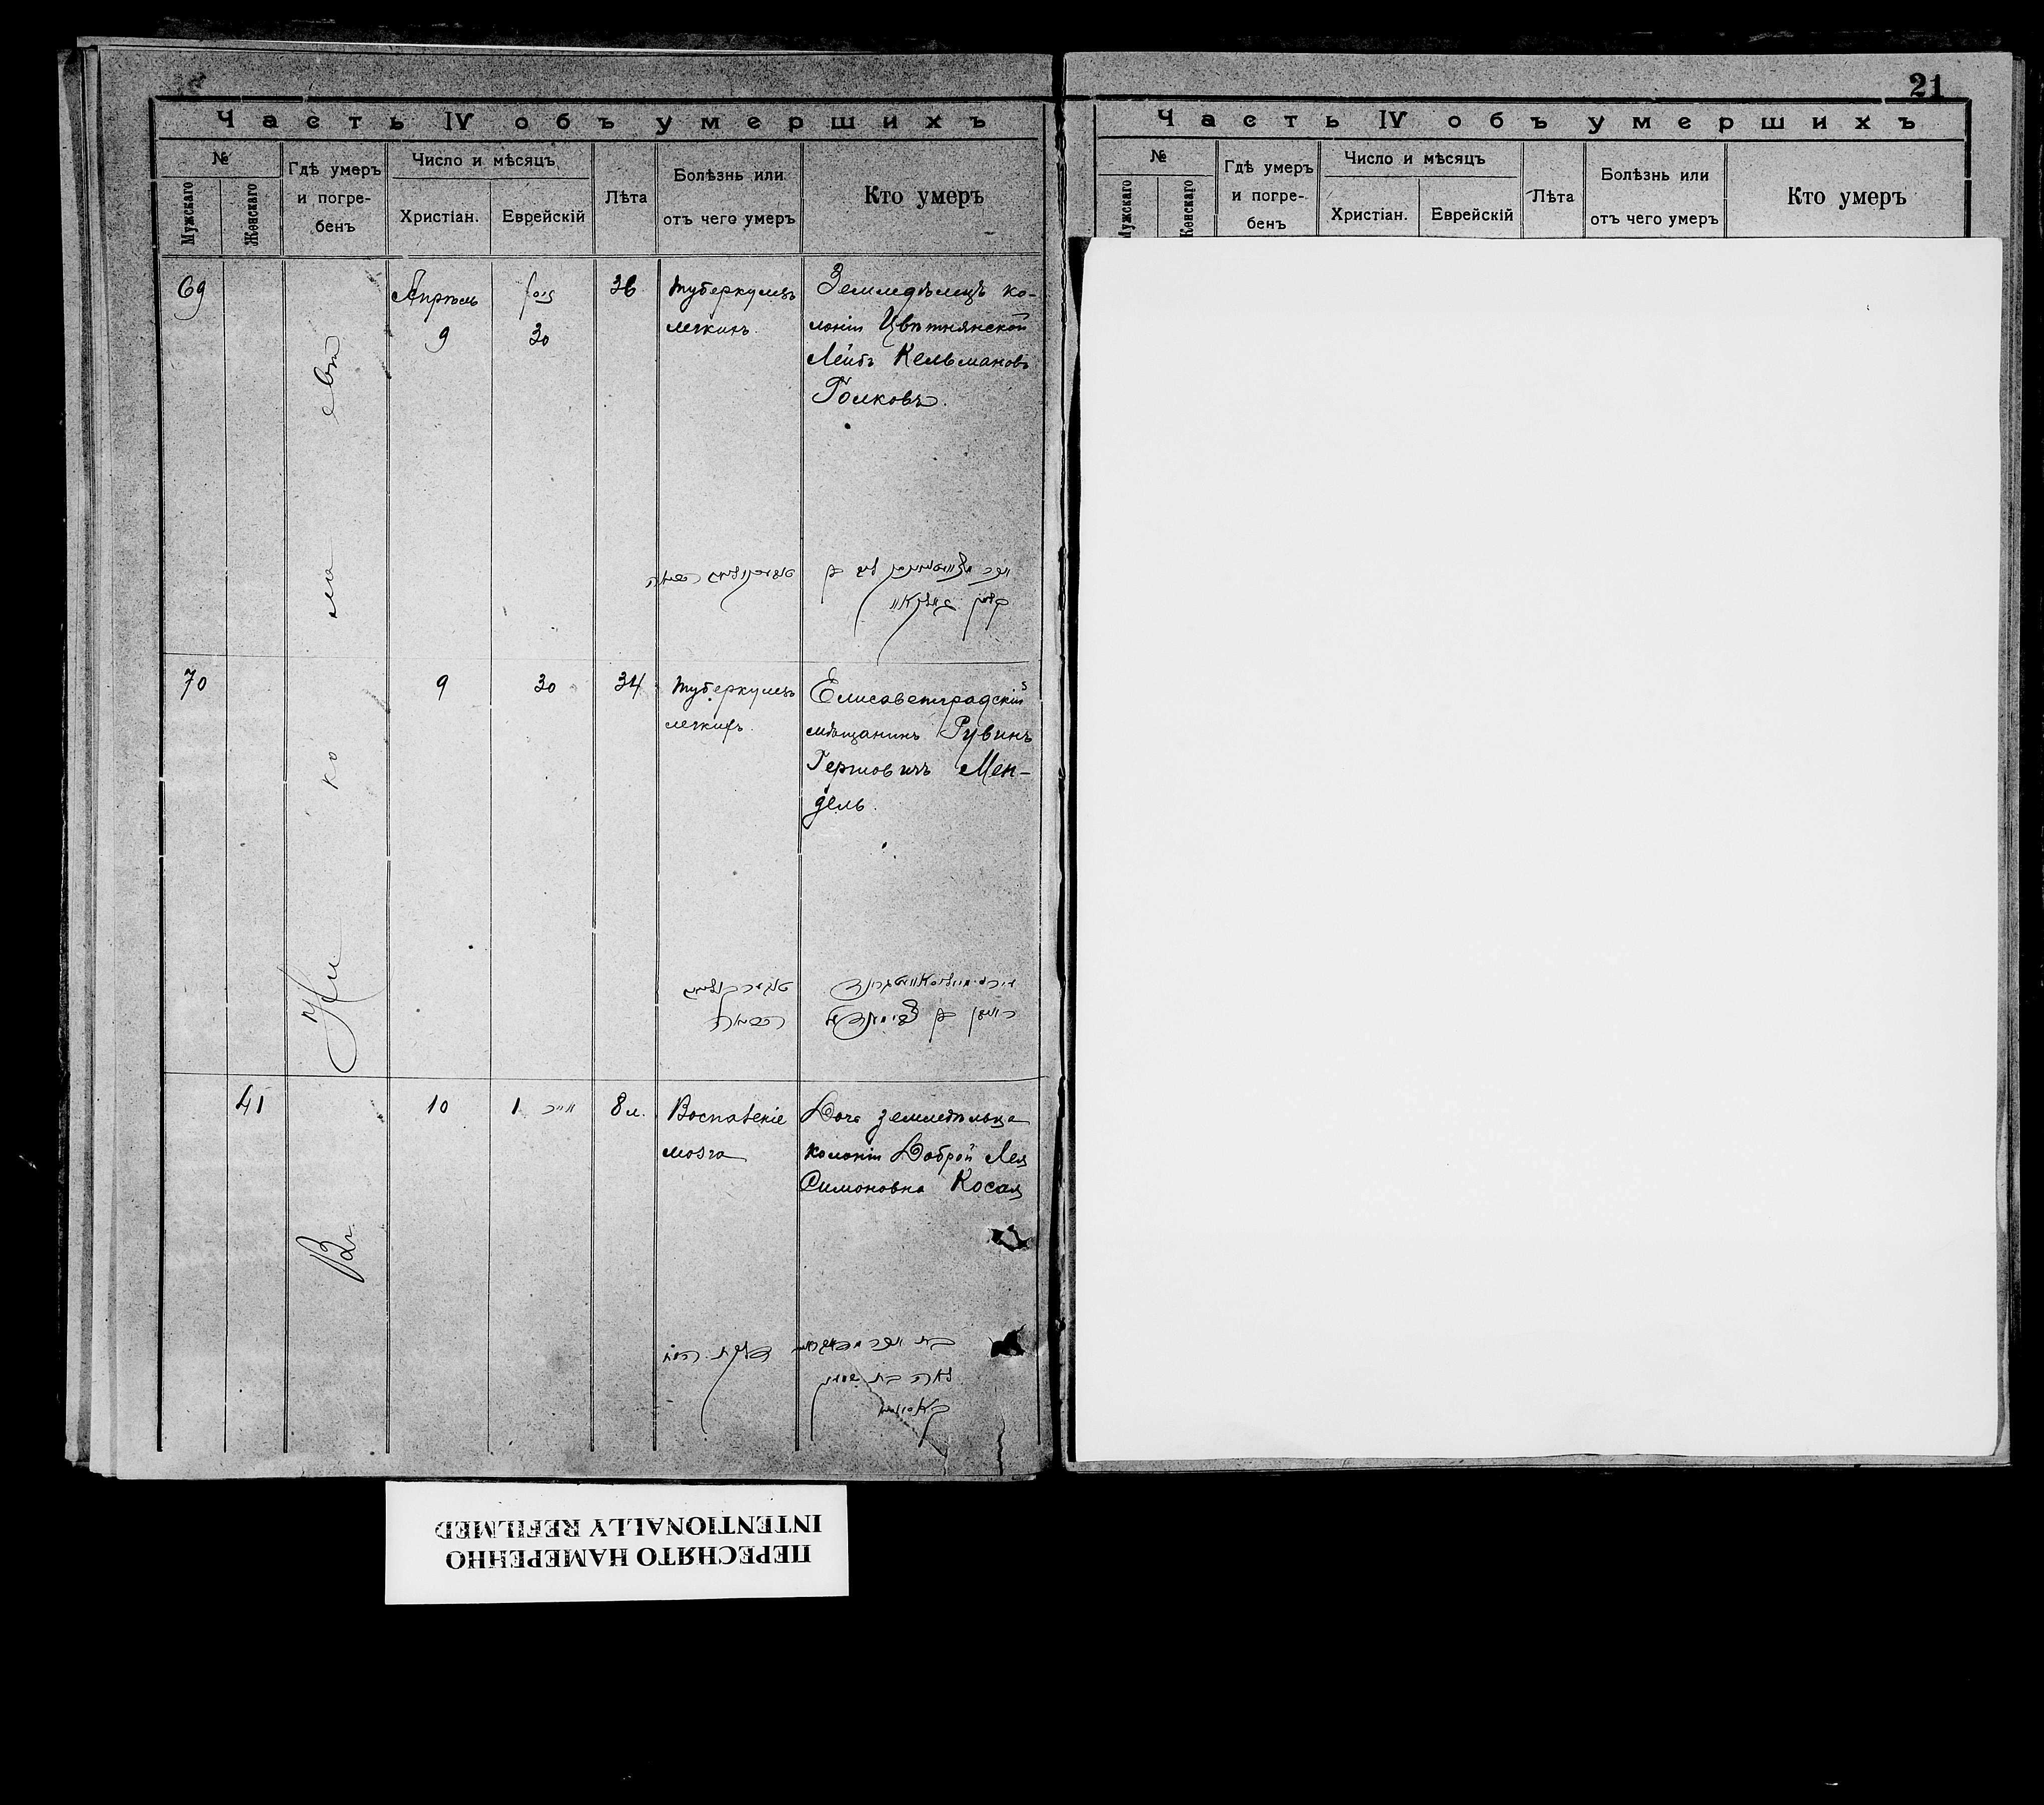 21
Часть IV объ умершихъ
№
Мужскаго
Женскаго
Гдѣ умеръ
и погре-
бенъ
Число и мѣсяцъ
Христіан.
Еврейскій
Лѣта
Болѣзнь или
отъ чего умеръ
Кто умеръ
69
Апрѣль
9
ניסן
30
36
туберкулезъ
легкихъ.
Земледѣлецъ ко-
лоніи Цвѣтнянской
Лейбъ Кельмановъ
Голковъ.
70
9
30
34
туберкулезъ
легкихъ.
Елисаветградскій
мѣщанинъ Рувинъ
Гершовичъ Мен-
дель.
41
10
1 אייר
8 л.
Воспаленіе
мозга
Дочь земледѣльца
колоніи Доброй Лея
Симоновна Косая
דלקת המוח
לאה בת שמעון
Въ г. Николаевѣ
Часть IV объ умершихъ
№
Мужскаго
Женскаго
Гдѣ умеръ
и погре-
бенъ
Число и мѣсяцъ
Христіан.
Еврейскій
Лѣта
Болѣзнь или
отъ чего умеръ
Кто умеръ
ПЕРЕСНЯТО НАМЕРЕННО
INTENTIONALLY REFILMED